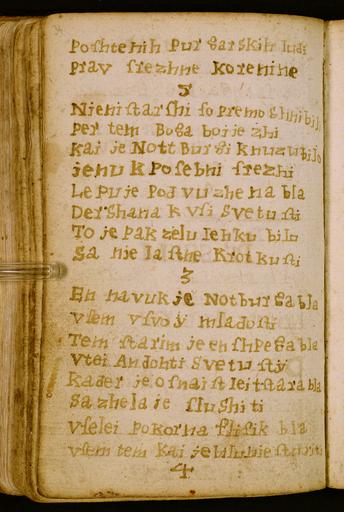 Poshtenih Purgarskih ludi
Prav srezhne korenine
2
Nieni starshi so premoshni bili
Per tem Boga boijezhi
Kai je Nott Burgi k nuzu bilo
ienu k Posebni srezhi
Lepu je Pod vuzhena bla
Dershana k vsi Svetusti
To je pak zelu lehku bilu
Ga nie lasthe Krotkusti
3
En navuk je Notburga bla
vsem v svoy mladosti
Tem starim je en shpegabla
vtei Andohti Svetusty
Kader je osnaist leit stara bla
Ga zhela je slushiti
vselei Pokorna flisik bla
vsem tem kai je blu
4